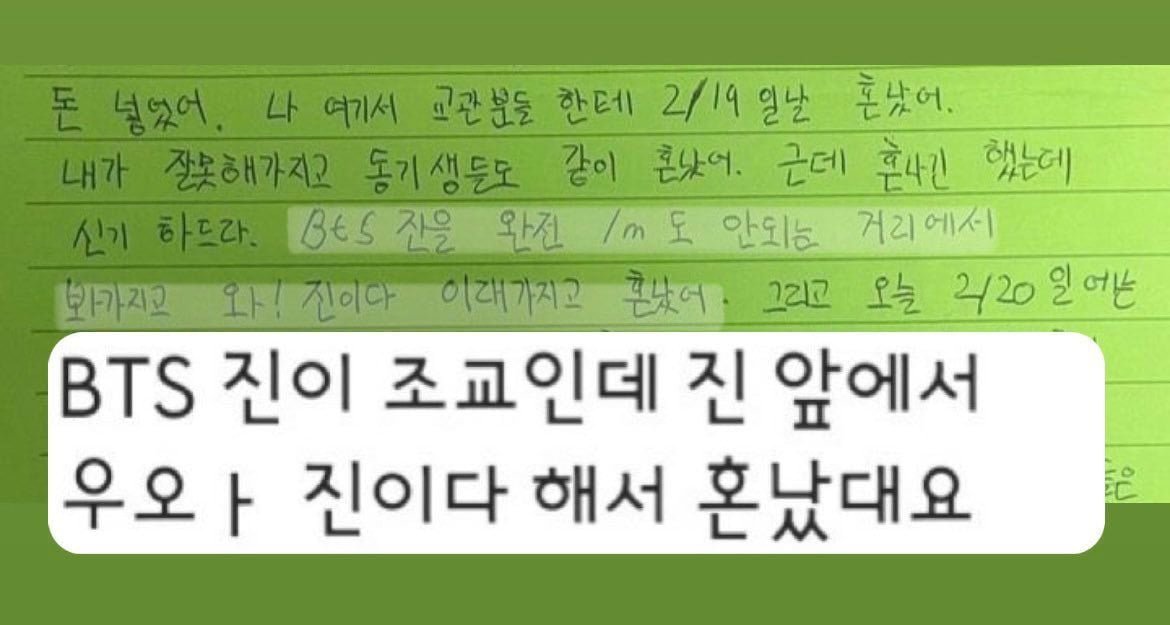 돈 넣었어. 나 여기서 교관분들 한테 2/19 일날 혼났어.
내가 잘못해가지고 동기생들도 같이 혼났어. 근데 혼나긴 했는데
신기 하드라. BtS 진을 완전 1m 도 안되는 거리에서
봐가지고 와! 진이다 이래가지고 혼났어. 그리고 오늘 2/20 일 에는
BTS 진이 조교인데 진 앞에서
우오ㅏ 진이다 해서 혼났대요